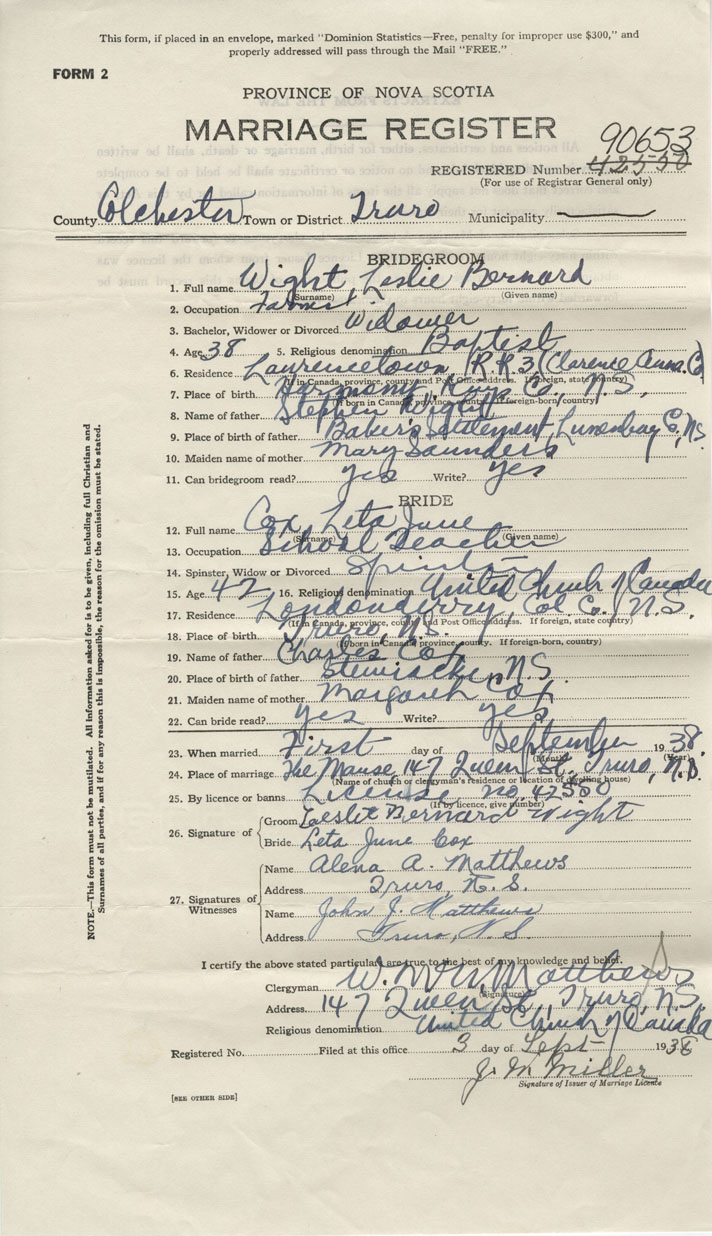 This form, if placed in an envelope, marked "Dominion Statistics—Free, penalty for improper use $300," and
properly addressed will pass through the Mail "FREE."
FORM 2
PROVINCE OF NOVA SCOTIA
MARRIAGE REGISTER
90653
REGISTERED Number 42550
(For use of Registrar General only)
County Colchester Town or District Truro Municipality
BRIDEGROOM
1. Full name Wight, Leslie Bernard
(Surname) (Given name)
2. Occupation Farmer
3. Bachelor, Widower or Divorced Widower
4. Age 38 5. Religious denomination Baptist
6. Residence Laurencetown, R.R.3 (Clarence Anna. Co)
(If in Canada, province, county and Post Office address. If foreign, state country)
7. Place of birth Harmony, Co., N.S.
(If born in Canada, province, county. If foreign-born, country)
8. Name of father Stephen Wight
9. Place of birth of father Baker's Settlement, Lunenburg Co, N.S.
10. Maiden name of mother Mary Saunders
11. Can bridegroom read? yes Write? yes
BRIDE
12. Full name Cox, Leta June
(Surname) (Given name)
13. Occupation School Teacher
14. Spinster, Widow or Divorced Spinster
15. Age 42 16. Religious denomination United Church of Canada
17. Residence Londonderry, Col. Co., N.S.
(If in Canada, province, county and Post Office address. If foreign, state country)
18. Place of birth Truro, N.S.
(If born in Canada, province, county. If foreign-born, country)
19. Name of father Charles Cox
20. Place of birth of father Stewiacke, N.S.
21. Maiden name of mother Margaret Cox
22. Can bride read? yes Write? yes
23. When married First day of September 1938
(Month) (Year)
24. Place of marriage The Manse, 147 Queen St., Truro, N.S.
(Name of church or clergyman's residence or location of dwelling house)
25. By licence or banns License no. 42550
(If by licence, give number)
26. Signature of
Groom Leslie Bernard Wight
Bride Leta June Cox
27. Signatures of Witnesses
Name Alena A. Matthews
Address Truro, N.S.
Name John J. Matthews
Address Truro, N.S.
I certify the above stated particulars are true to the best of my knowledge and belief.
Clergyman W. Matthews
(Signature)
Address 147 Queen St., Truro, N.S.
Religious denomination United Church of Canada
Registered No. Filed at this office 3 day of Sept 1938
J. M. Miller
Signature of Issuer of Marriage Licence
[SEE OTHER SIDE]
NOTE.—This form must not be mutilated. All information asked for is to be given, including full Christian and
Surnames of all parties, and if for any reason this is impossible, the reason for the omission must be stated.